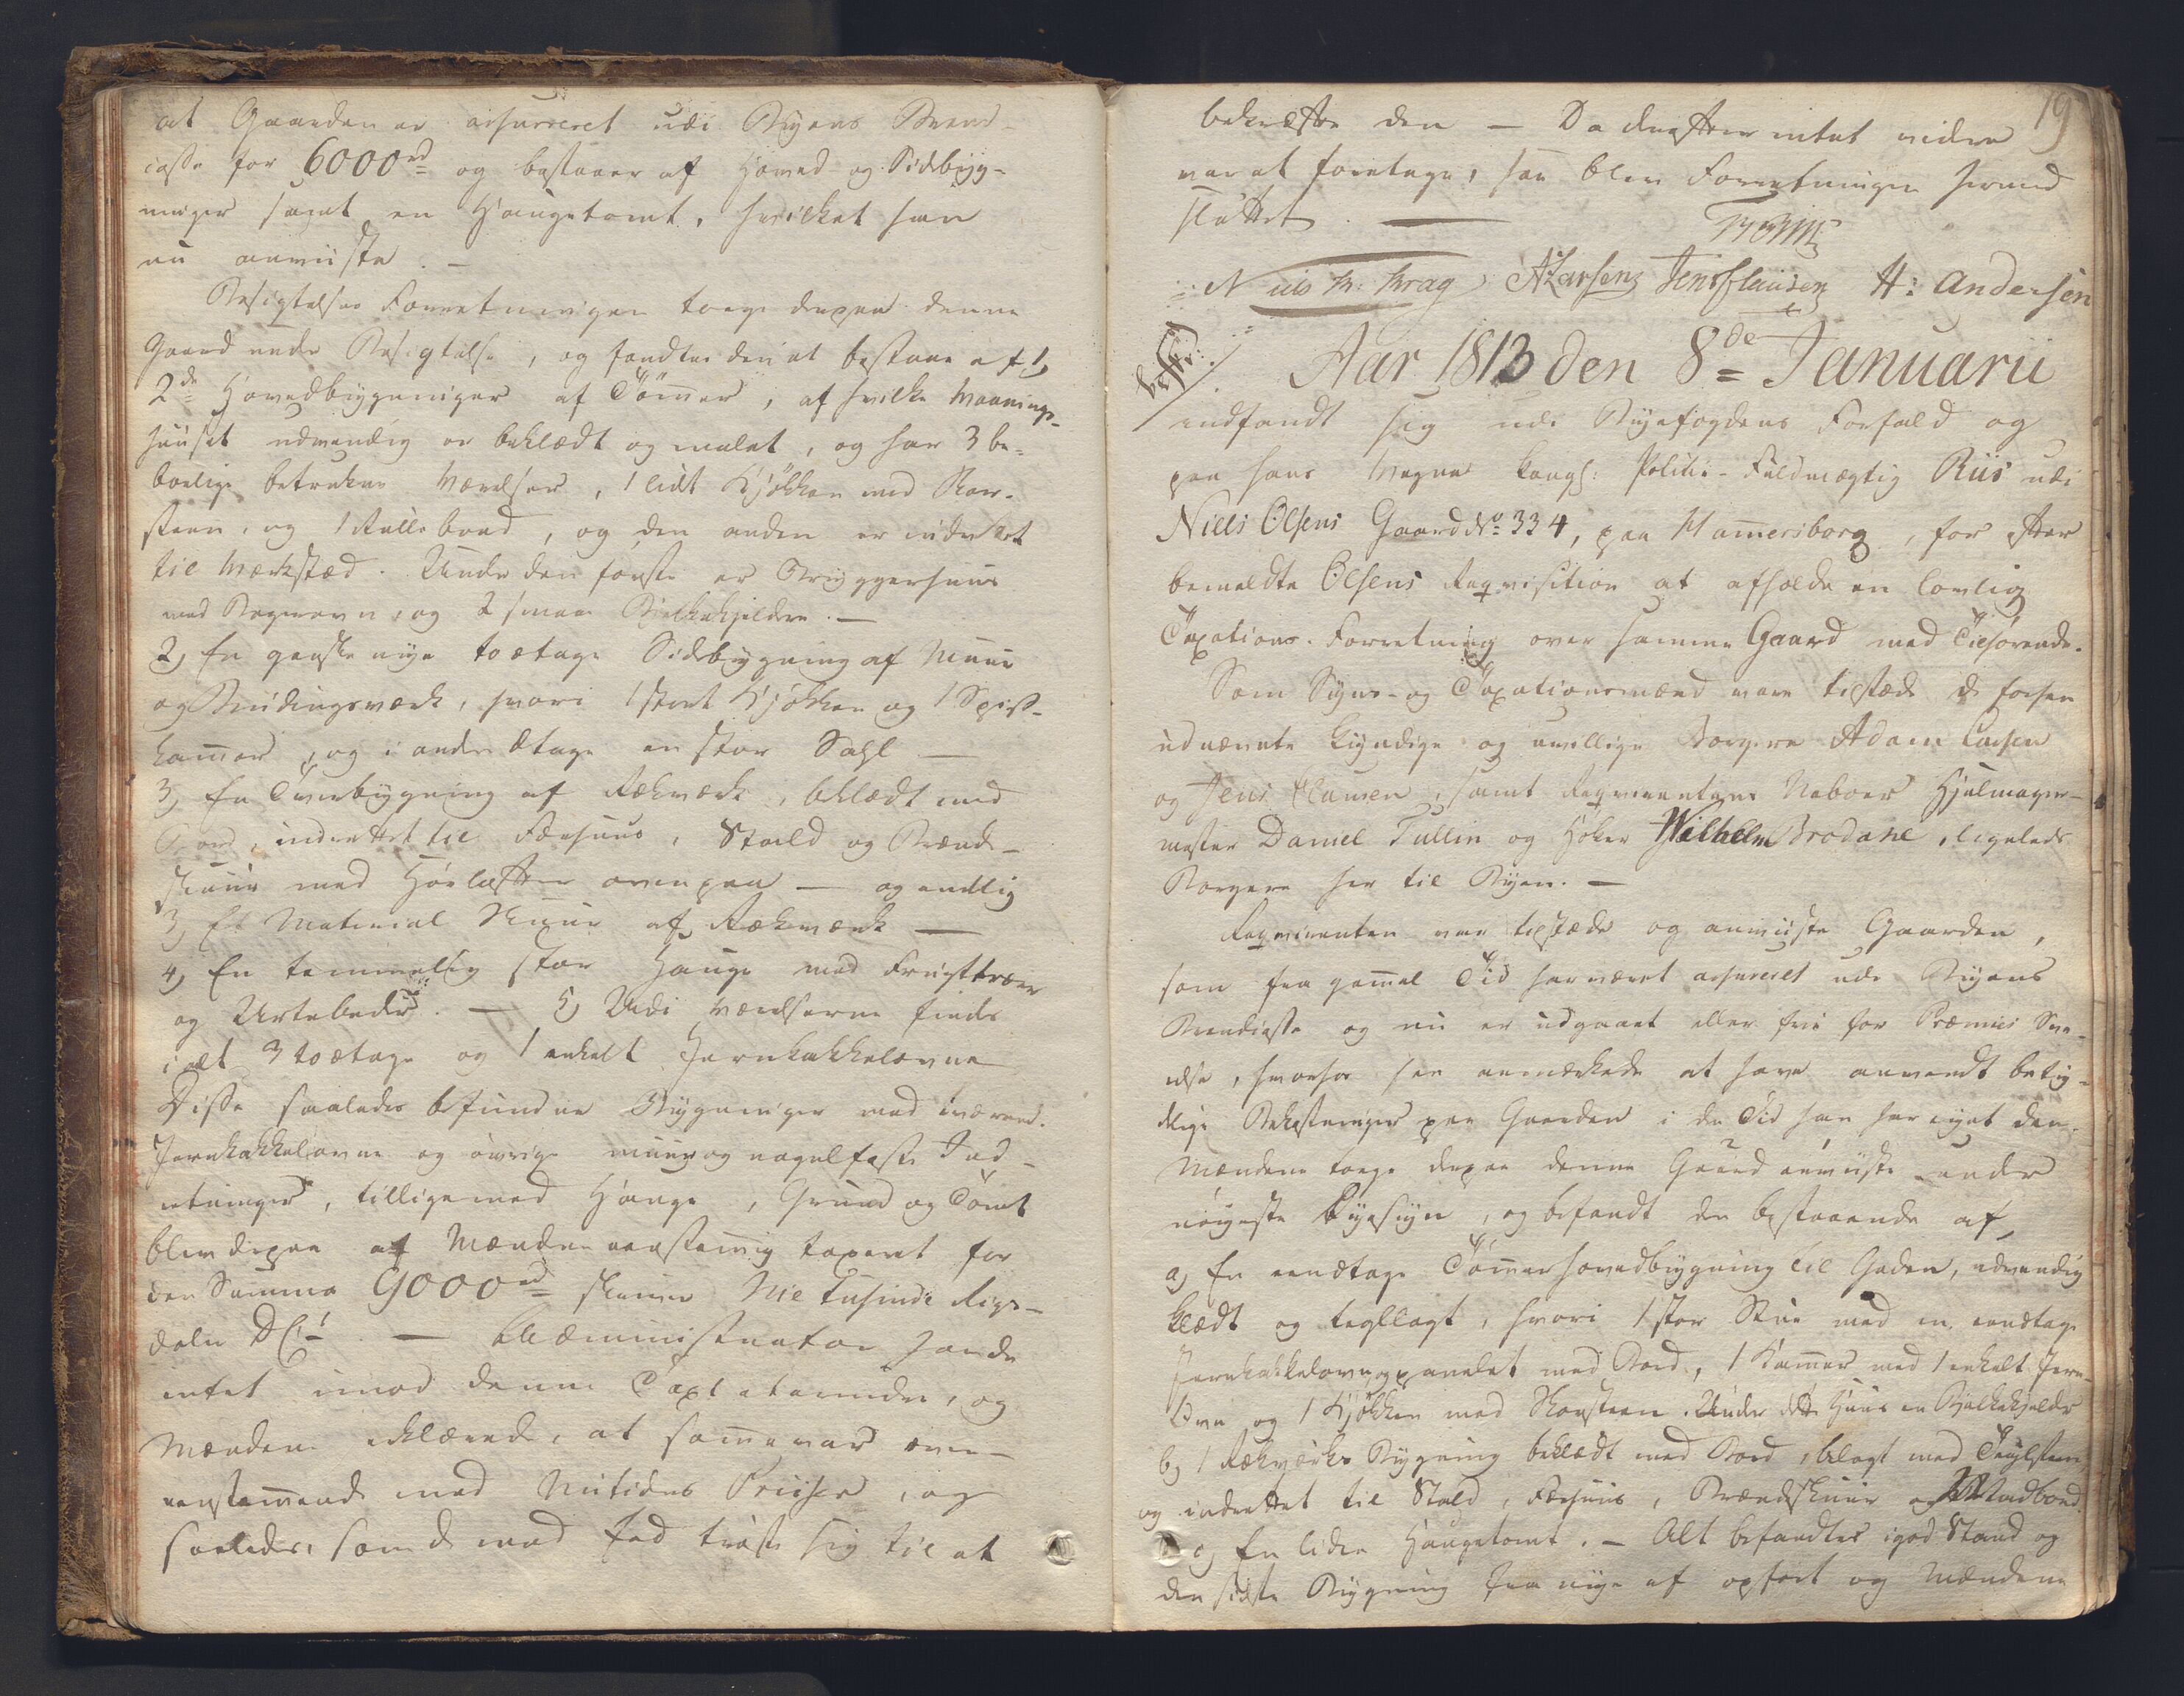 at Gaarden er assurreret udi Byens Brand-
casse for 6000 rd og bestaaer af Hoved- og Sidebyg-
ninger samt en Haugetomt, hvilket han
nu anviiste. —
Besigtelses Forretningen toge derpaa denne
Gaard under Besigtelse, og fandtes den at bestaae af 1)
2de Hovedbygninger af Tömer, af hvilke Vaanings-
huuset udvendig er beklædt og malet, og har 3 be-
boelige betrukne Værelser, 1 lidt Kjökken med Skor-
steen, og 1 Rullebord, og den anden er indrettet
til Værksted. Under den förste er Bryggerhuus
med Bagerovn, og 2 smaae Bielkekjeldere. —
2) En ganske nye toetages Sidebygning af Muur
og Bindingsværk, hvori 1 stort Kjökken og 1 Spiis-
kamer, og i anden Etage en stor Sahl —
3) En Tverbygning af Rekværk, beklædt med
Bord, indrettet til Fæehuus, Stald og Brænde-
skuur med Höeloftter ovenpaa — og endlig
3) Et Material Skuur af Rekværk —
4) En temmelig stor Hauge med Frugttræer
og Urtebedder. — 5) Udi Værelserne findes
i alt 3 toetages og 1 enkelt Jernkakkelovne
Disse saaledes befundne Bygninger med værende
Jernkakkelovne og övrige muur og nagelfaste Ind-
retninger, tilligemed Hauge, Grund og Tomt
blev derpaa af Mændene eenstemig taxeret for
den Summa 9000 rd skriver Nie Tusinde Rigs-
daler DC. — Administrator havde
intet imod denne Taxt at erindre, og
Mændene erklærede, at samme var over-
eenstemmende med Nutidens Priiser, og
saaledes som de med Eed tröste sig til at
19
bekræfte den — Da derefter intet videre
var at foretage, saa blev Forretningen hermed
sluttet. —
Niels Kr: Krag ALarsen Jens Clausen H: Andersen
beskr:
Aar 1813 den 8de Januarii
indfandt sig udi Byefogdens Forfald og
paa hans Vegne kongl: Politie-Fuldmægtig Riis udi
Niels Olsens Gaard No 334, paa Hamersborg, for efter
bemeldte Olsens Reqvisition at afholde en lovlig
Taxations-Forretning over samme Gaard med Tilhörende.
Som Syns- og Taxationsmænd vare tilstæde de forhen
udnævnte kyndige og uvillige Borgere Adam Larsen
og Jens Clausen, samt Reqvirentens Naboer Hjulmager-
mester Daniel Tullin og Höker Wilhelm Brodahl, ligeledes
Borgere her til Byen. —
Reqvirenten var tilstæde og anviiste Gaarden,
som fra gamel Tid har været assureret udi Byens
Brandcasse og nu er udgaaet eller frie for Præmies Sva-
relse, hvorhos han anmærkede at have anvendt betyde-
lige Bekostninger paa Gaarden i den Tid han har ejet den.
Mændene toge derpaa denne Gaard anviiste under
nöjeste Eyesyn, og befandt den bestaaende af,
a) En eenetages Tömer hovedbygning til Gaden, udvendig
klædt og tegllagt, hvori 1 stor Stue med en eenetages
Jernkakkelovn, panelet med Bord, 1 Kamer med 1 enkelt Jern-
Ovn og 1 Kjökken med Skorsteen. Under dette Huus en Bjelkekjelder
b) 1 Rekværks Bygning beklædt med Bord, belagt med Teiglsteen,
og indrettet til Stald, Fæehuus, Brændeskuur og Madbod
c) En liden Haugetomt. — Alt befandtes i god Stand og
den sidste Bygning fra nye af opfört og Mændene